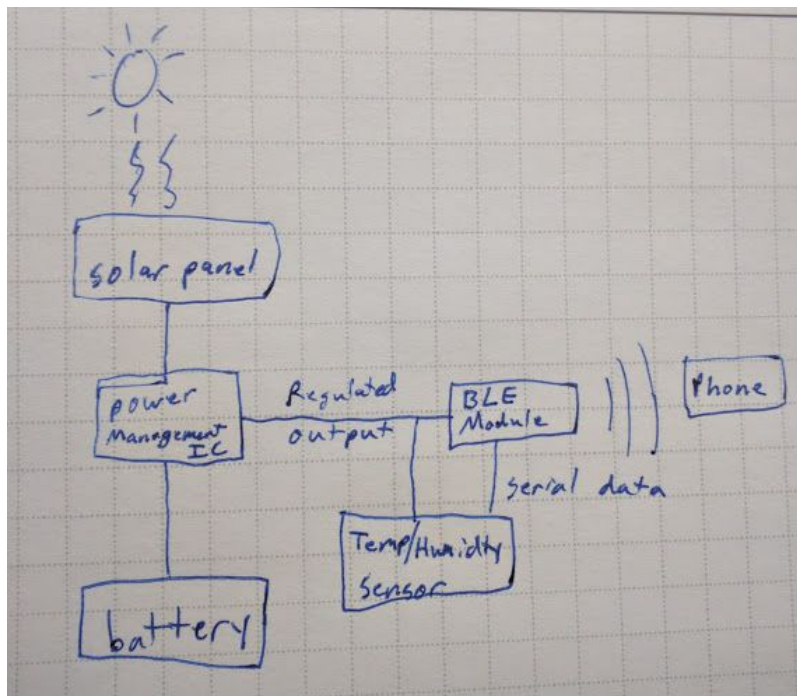 solar panel
power
Management
IC
Regulated
output
BLE
Module
Phone
serial data
Temp/Humidty
sensor
battery